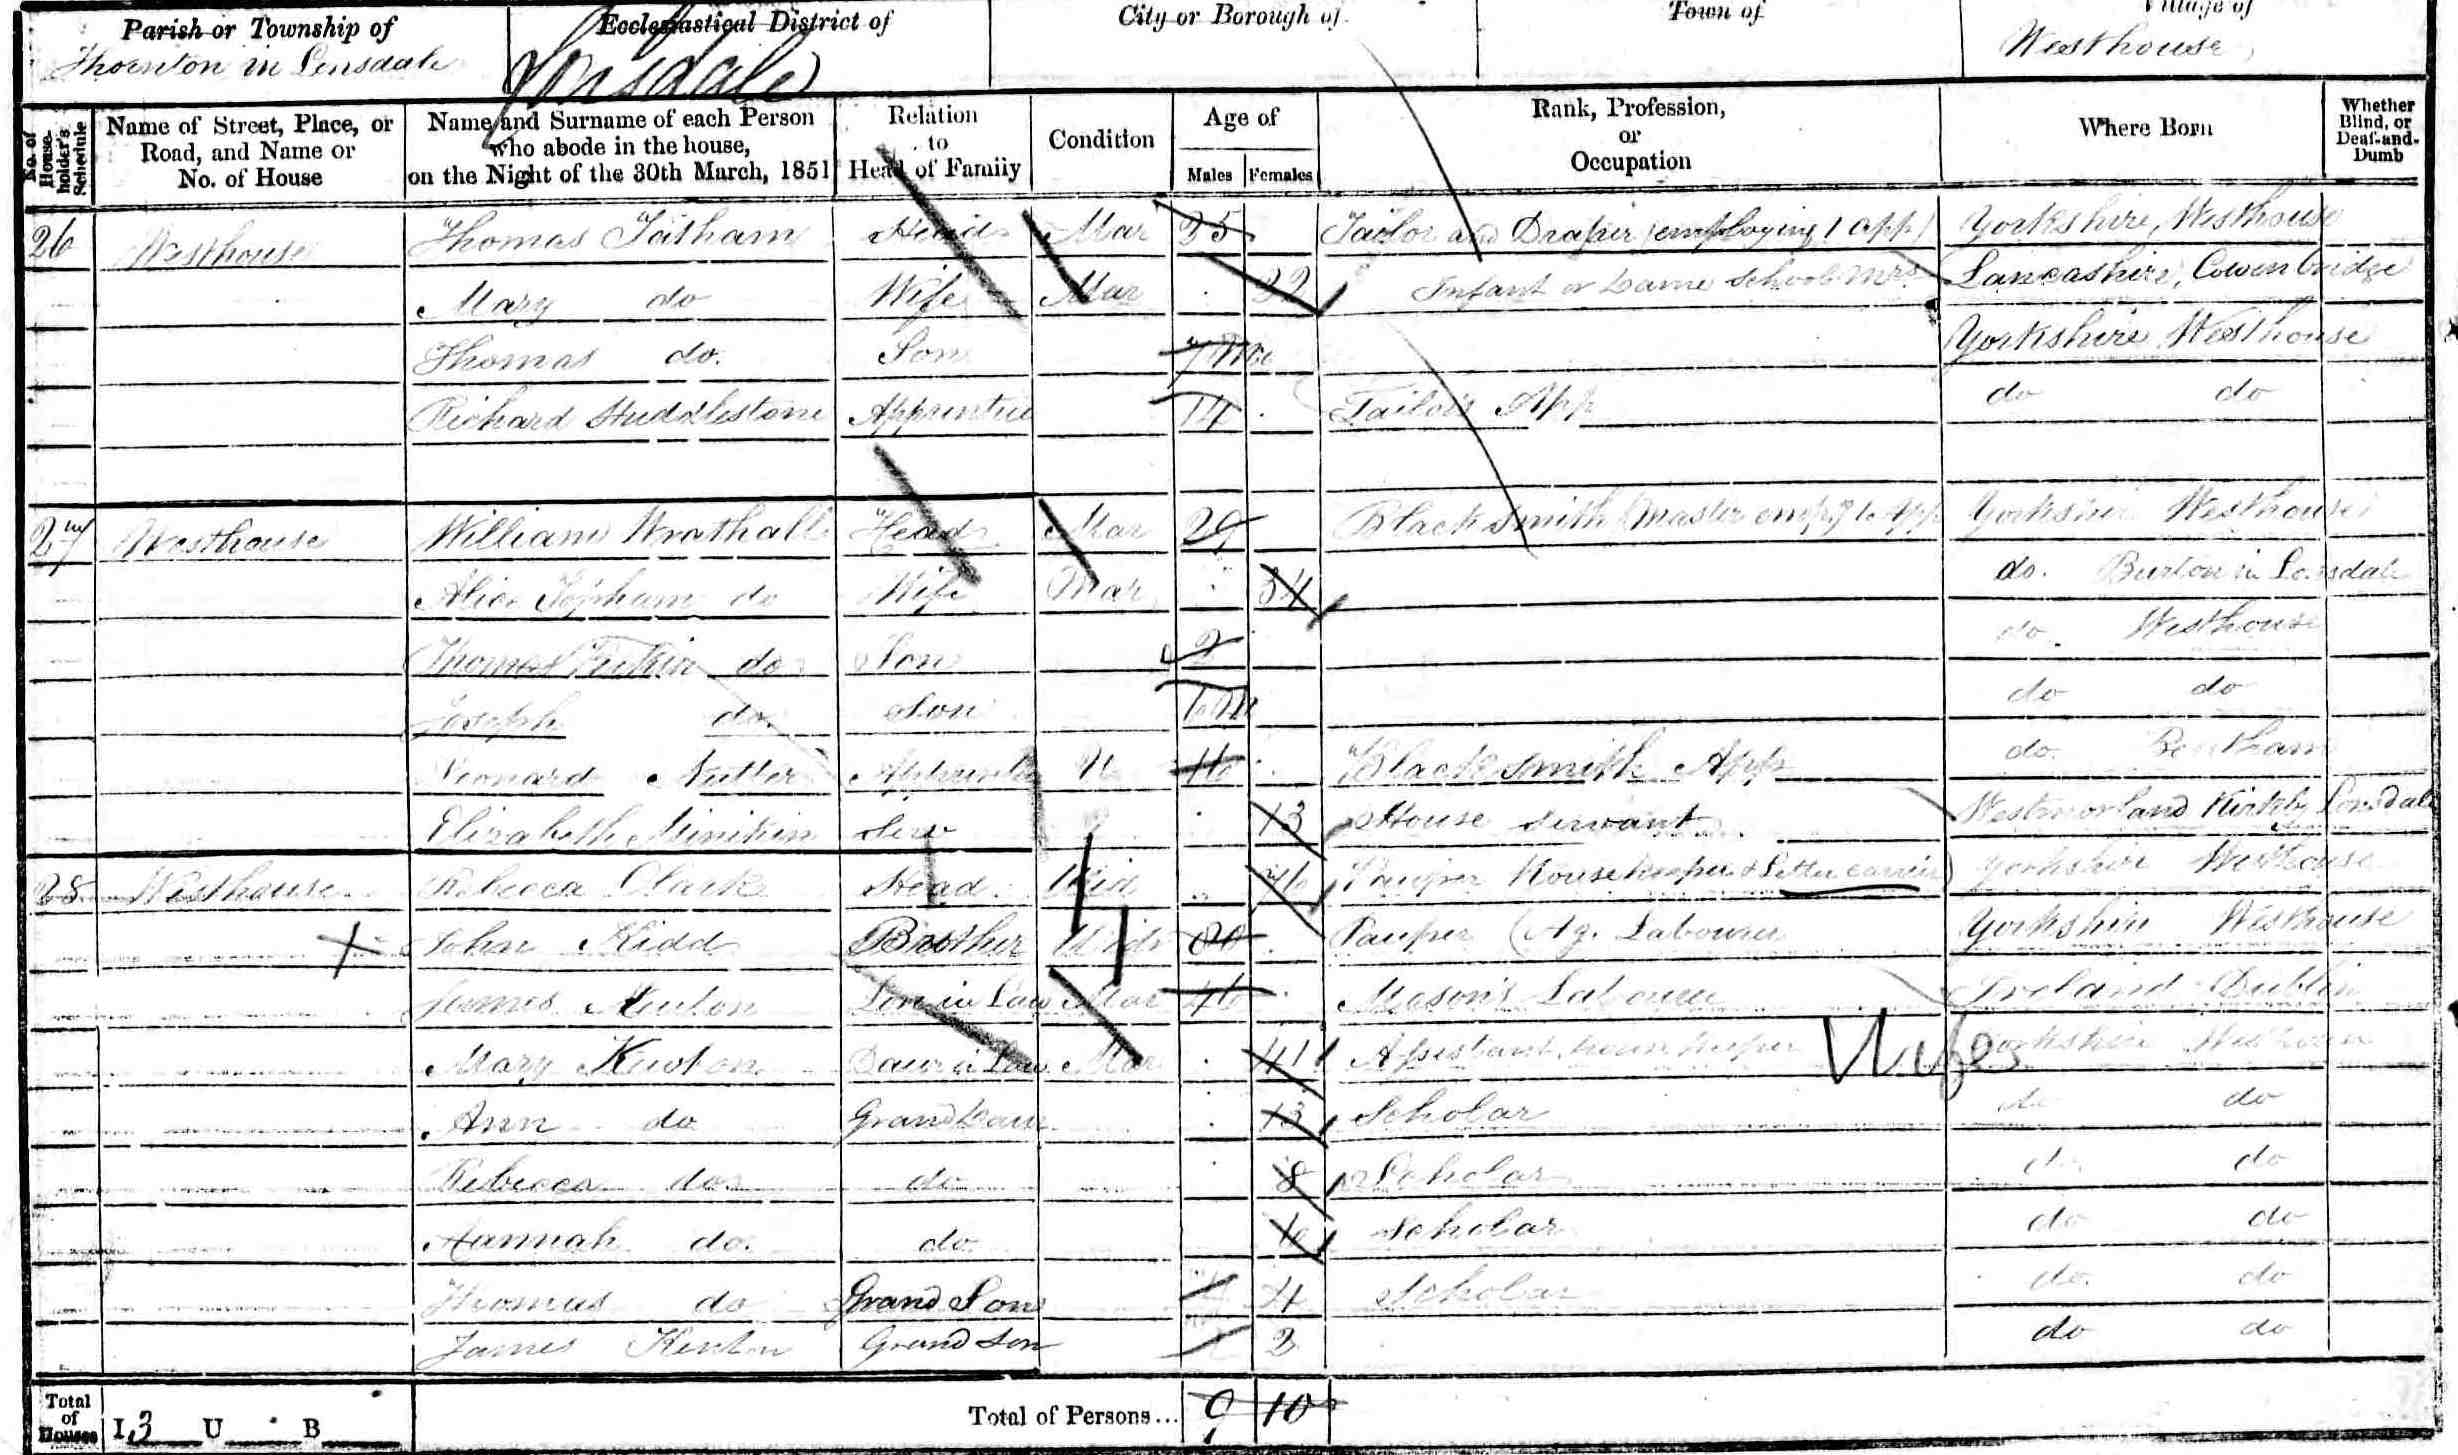 Parish or Township of
Thornton in Lonsdale
Ecclesiastical District of
Lonsdale
City or Borough of
Town of
Village of
Westhouse
No. of House-holder's Schedule
Name of Street, Place, or Road, and Name or No. of House
Name and Surname of each Person who abode in the house, on the Night of the 30th March, 1851
Relation to Head of Family
Condition
Age of
Males Females
Rank, Profession, or Occupation
Where Born
Whether Blind, or Deaf-and-Dumb
26 Westhouse Thomas Tatham Head Mar 35 Tailor and Draper (employing 1 app) Yorkshire, Westhouse
Mary do Wife Mar 32 Infant or Dame School Mrs Lancashire, Cowenbridge
Thomas do. Son 7 Mo Yorkshire Westhouse
Richard Huddlestone Apprentice 14 Tailor's App do do
27 Westhouse William Wrathall Head Mar 29 Blacksmith (Master App Yorkshire Westhouse
Alice Topham do Wife Mar 34 do. Burton in Lonsdale
Thomas do Son 2 do. Westhouse
Joseph do Son do do
Leonard Nutter Apprentice U 16 Blacksmith App do. Bentham
Elizabeth Minikin Serv 13 House Servant Westmorland Kirkby Lonsdale
28 Westhouse Rebecca Clark Head Wid 76 Pauper Housekeeper & Letter carrier Yorkshire Westhouse
John Kidd Brother Widr 80 Pauper (Ag. Labourer Yorkshire Westhouse
James Newton Son in Law Mar 46 Mason's Labourer Ireland Dublin
Mary Newton Daur in Law Mar 41 Assistant house keeper Wife Yorkshire Westhouse
Ann do Grand Daur 13 Scholar do do
Rebecca do do 8 Scholar do do
Hannah do. do 6 Scholar do do
Thomas do Grand Son 4 Scholar do. do
James Grand Son 2 do do
Total of Houses I 3 U B
Total of Persons... 9 10